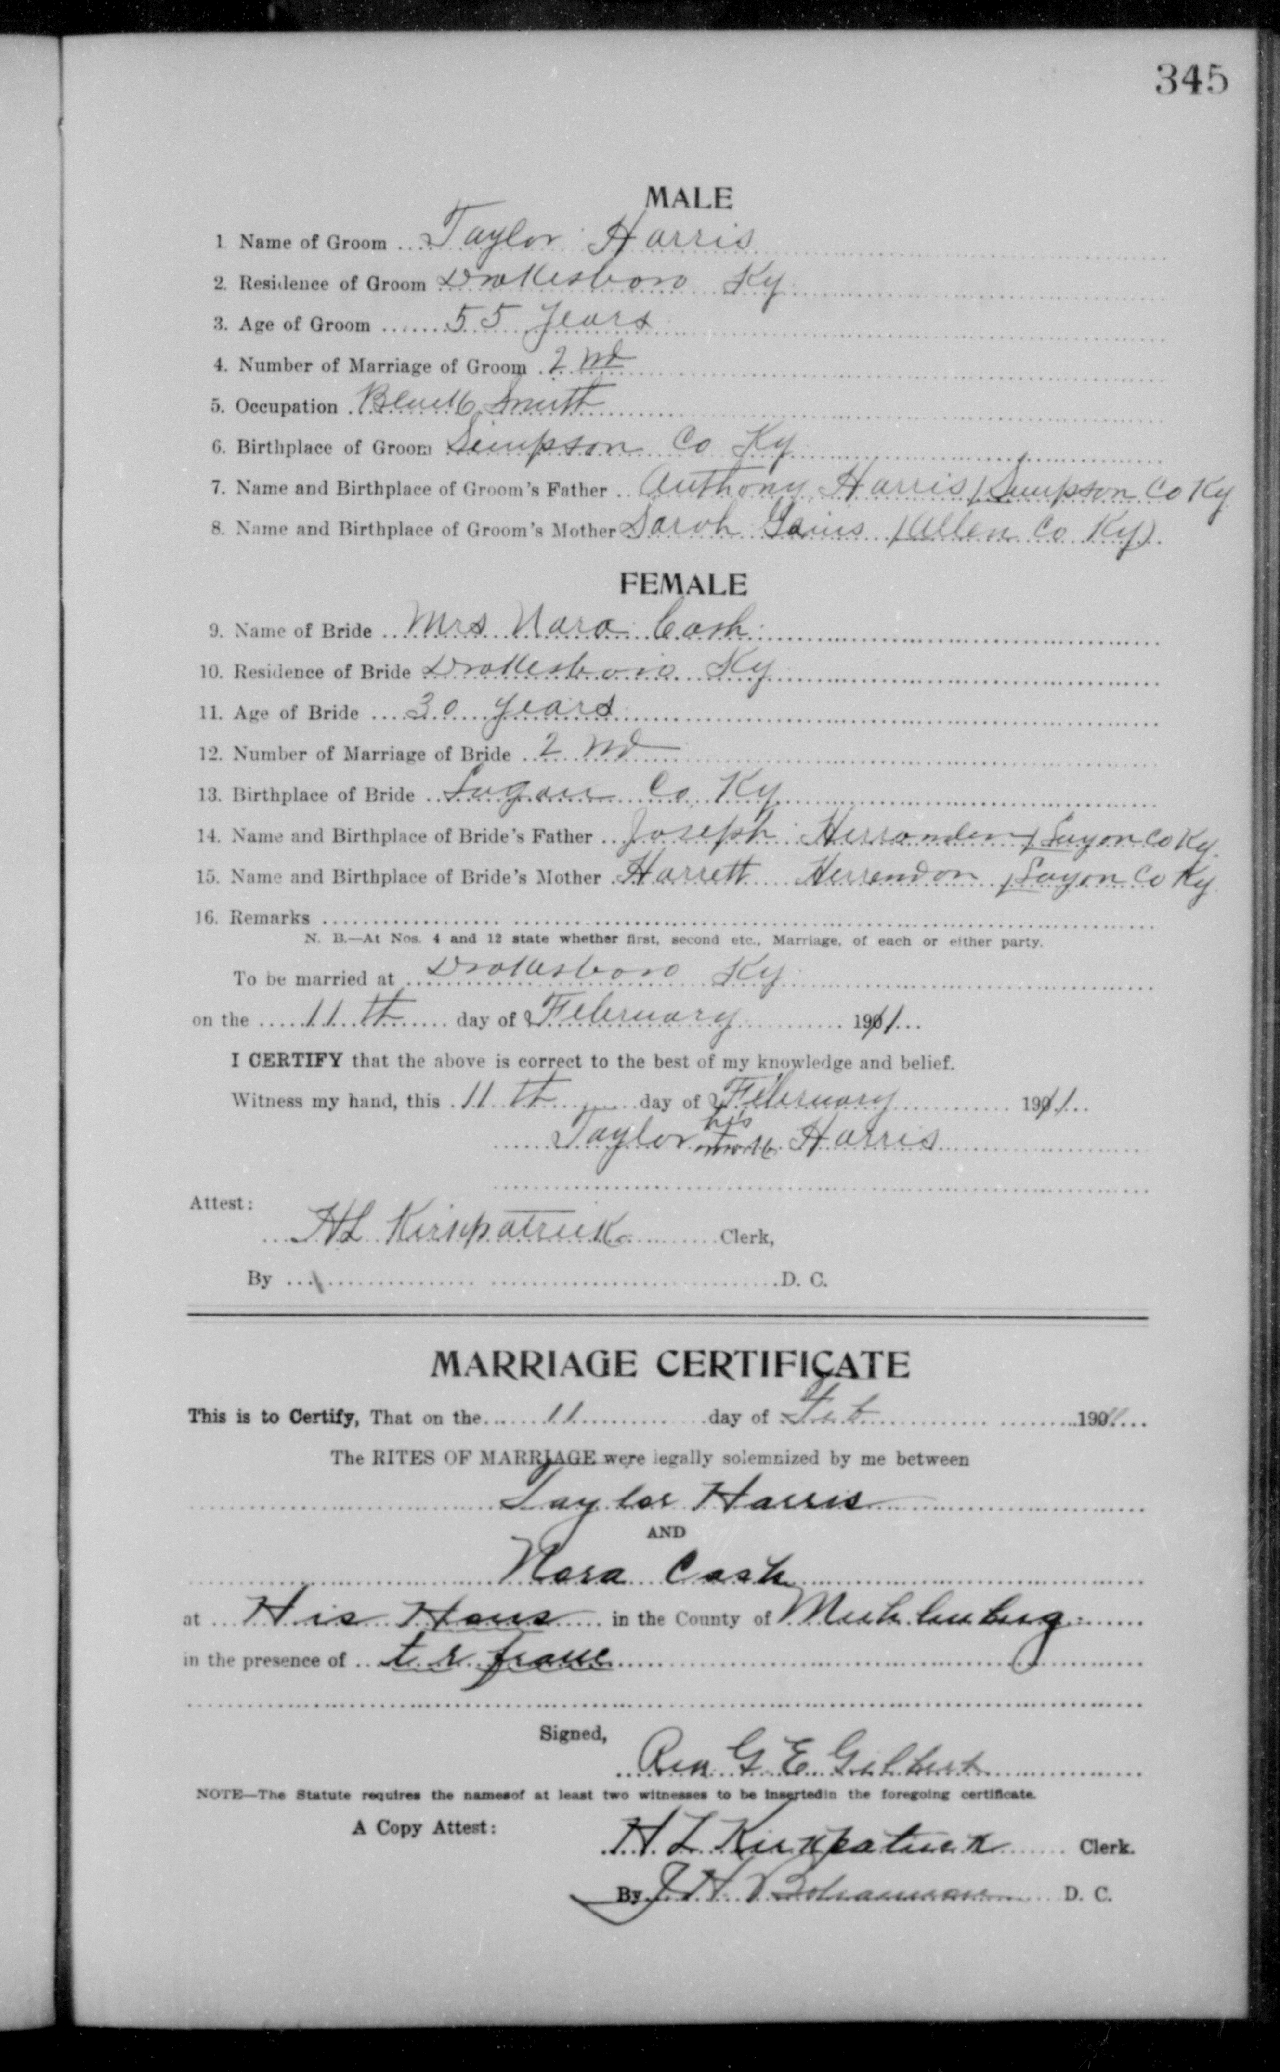 345
MALE
1 Name of Groom Taylor Harris
2. Residence of Groom Drakesboro Ky
3. Age of Groom 55 years
4. Number of Marriage of Groom 2nd
5. Occupation Black Smith
6. Birthplace of Groom Simpson Co Ky
7. Name and Birthplace of Groom's Father Anthony Harris (Simpson Co Ky
8. Name and Birthplace of Groom's Mother Sarah Gains (Allen Co Ky)
FEMALE
9. Name of Bride Mrs Nora Cash
10. Residence of Bride Drakesboro Ky
11. Age of Bride 30 years
12. Number of Marriage of Bride 2nd
13. Birthplace of Bride Logan Co Ky
14. Name and Birthplace of Bride's Father Joseph Herranden (Logon Co Ky
15. Name and Birthplace of Bride's Mother Harrett Herrendon (Logon Co Ky
16. Remarks
N. B.—At Nos. 4 and 12 state whether first, second etc., Marriage, of each or either party.
To be married at Drakesboro Ky
on the 11th day of February 1911
I CERTIFY that the above is correct to the best of my knowledge and belief.
Witness my hand, this 11th day of February 1911
Taylor his mark Harris
Attest:
HL Kirkpatrick Clerk,
By D. C.
MARRIAGE CERTIFICATE
This is to Certify, That on the 11 day of Feb 1911
The RITES OF MARRIAGE were legally solemnized by me between
Taylor Harris
AND
Nora Cash
at His Hous in the County of Muhlenberg
in the presence of t. r.
Signed,
Rev G E Gilbert
NOTE—The Statute requires the namesof at least two witnesses to be insertedin the foregoing certificate.
A Copy Attest:
H L Kirkpatrick Clerk.
By J H Bohannon D. C.